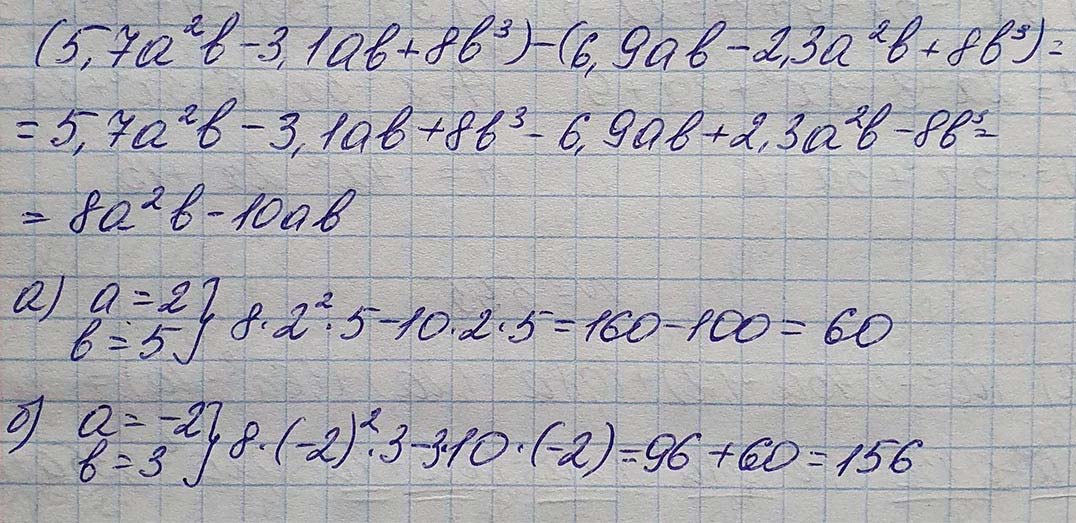 (5,7a²b-3,1ab+8b³)-(6,9ab-2,3a²b+8b³)=
=5,7a²b-3,1ab+8b³-6,9ab+2,3a²b-8b³=
=8a²b-10ab
а) a=2
b=5} 8·2²·5-10·2·5=160-100=60
б) a=-2
b=3} 8·(-2)²·3-3·10·(-2)=96+60=156